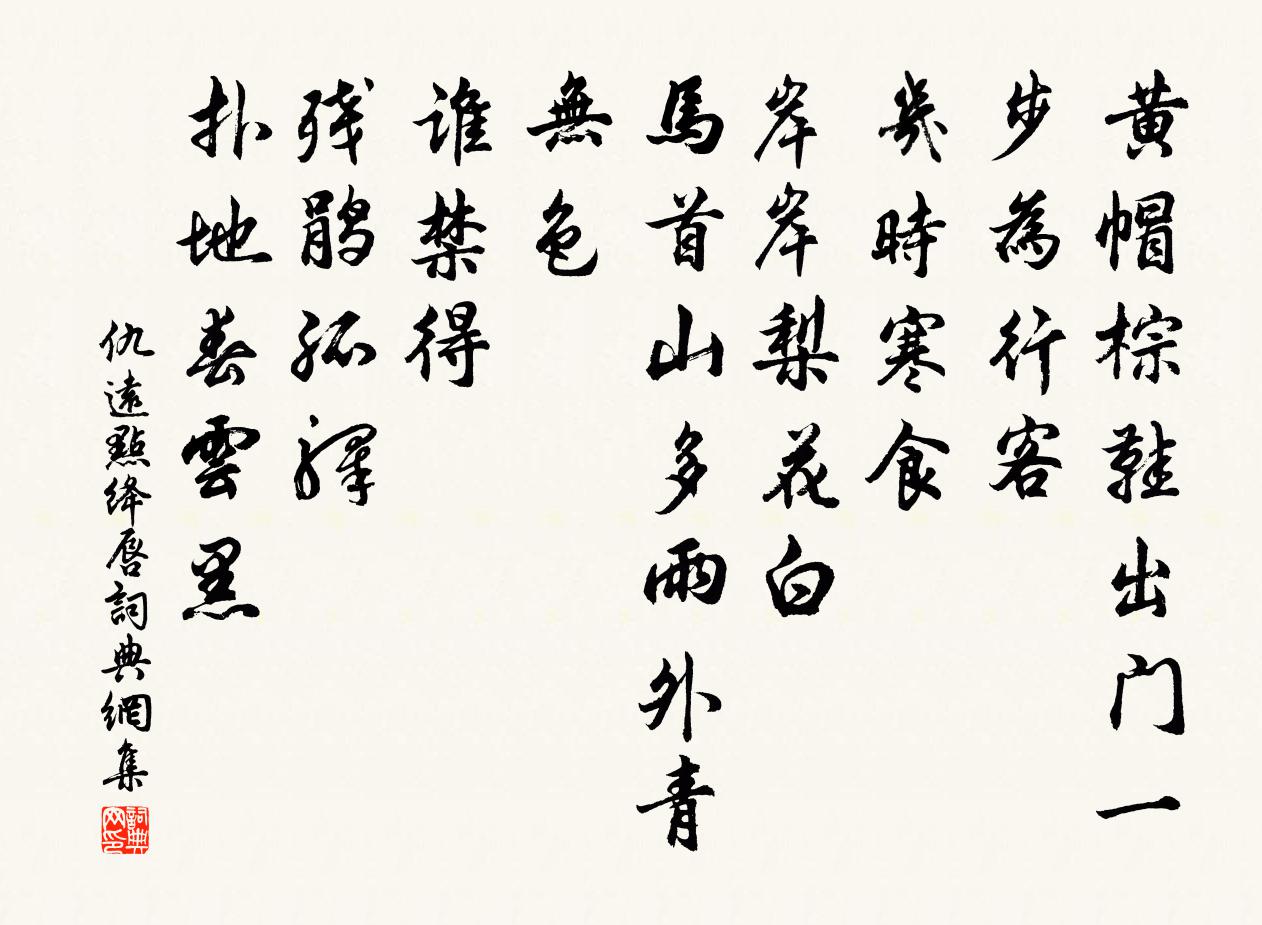 黄帽棕鞋出门一
步為行客
幾時寒食
岸岸梨花白
馬首山多雨外青
無色
誰禁得
残鹃孤驛
扑地春雲黑
仇遠點绛唇詞典網集
詞典网印